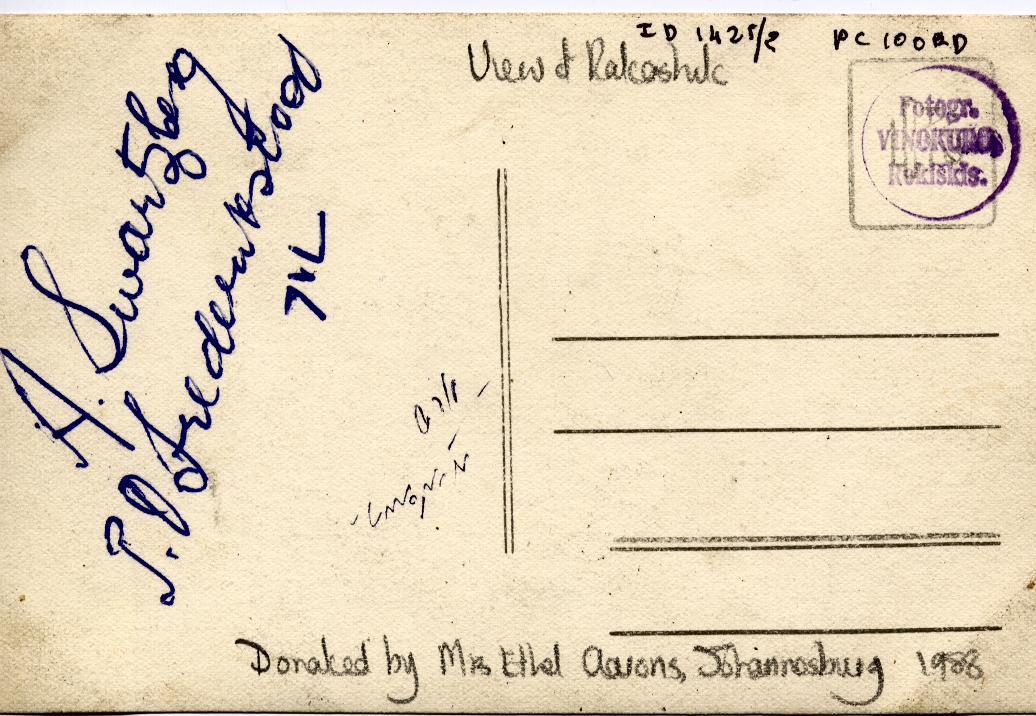 ID 1425/2
PC 100
View of Rakashik
Fotogr.
VINOKURO
Rokiškis.
A. Swartzberg
P.O Frederikstad
TVL
Donated by Mrs Ethel Aarons, Johannesburg 1988